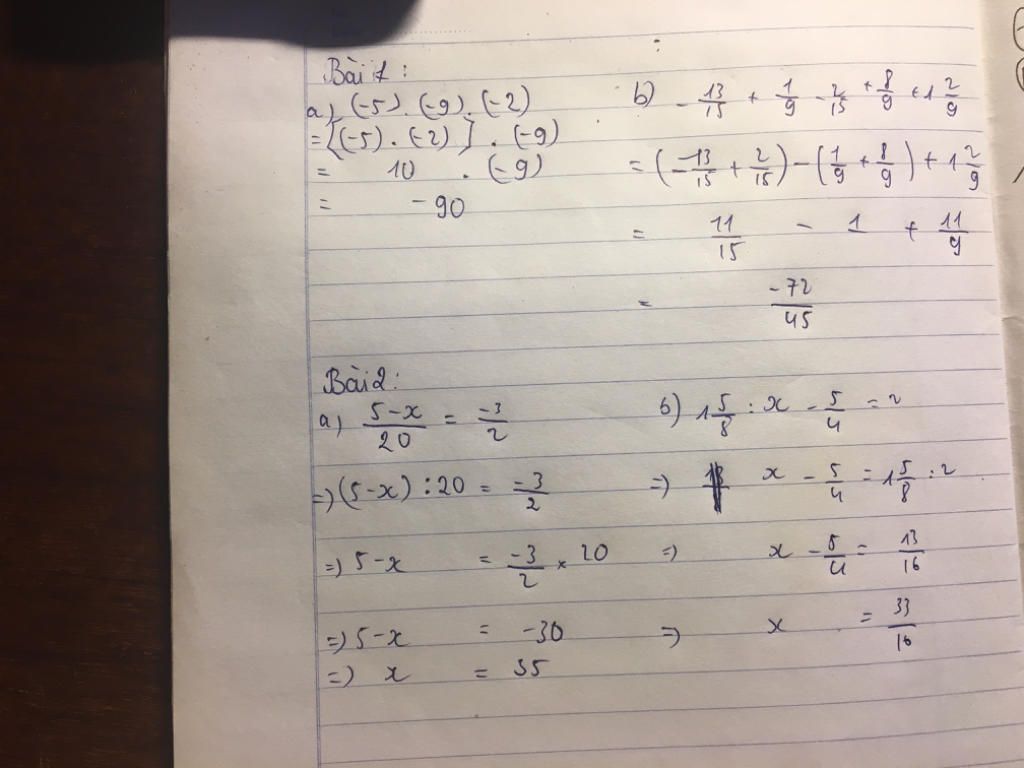 Bài 1:
a) (-5). (-9). (-2)
= [(-5). (-2)] . (-9)
= 10 . (-9)
= -90
b) -13/15 + 1/9 - 2/15 + 8/9 + 1 2/9
= (-13/15 + 2/15) - (1/9 + 8/9) + 1 2/9
= 11/15 - 1 + 11/9
= -72/45
Bài 2:
a) 5-x/20 = -3/2
=> (5-x) : 20 = -3/2
=> 5-x = -3/2 × 20
=> 5-x = -30
=> x = 35
b) 1 5/8 : x - 5/4 = 2
=> x - 5/4 = 1 5/8 : 2
=> x - 5/4 = 13/16
=> x = 33/16